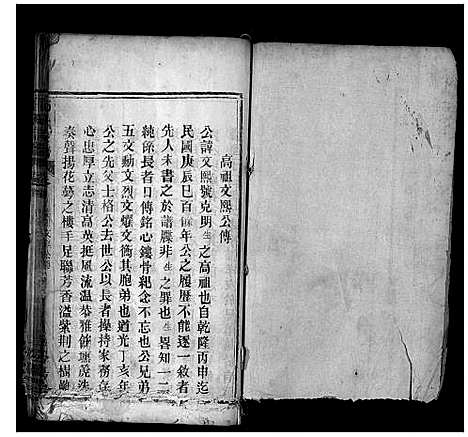 高祖文熙公傳
公諱文熙號克明生之高祖也自乾隆丙申迄
民國庚辰已百年公之履歷不能逐一敘者
先人未書之於譜牒非生之罪也生畧知一二
純係長者口傳銘心鏤骨紀念不忘也公兄弟
五文勳文烈文燿文衡其胞弟也道光丁亥年
公之先父士格公去世公以長者操持家務存
心忠厚立志清高英挺風流温恭雅
奏聲揚花萼之樓手足聯芳香溢紫荆之樹